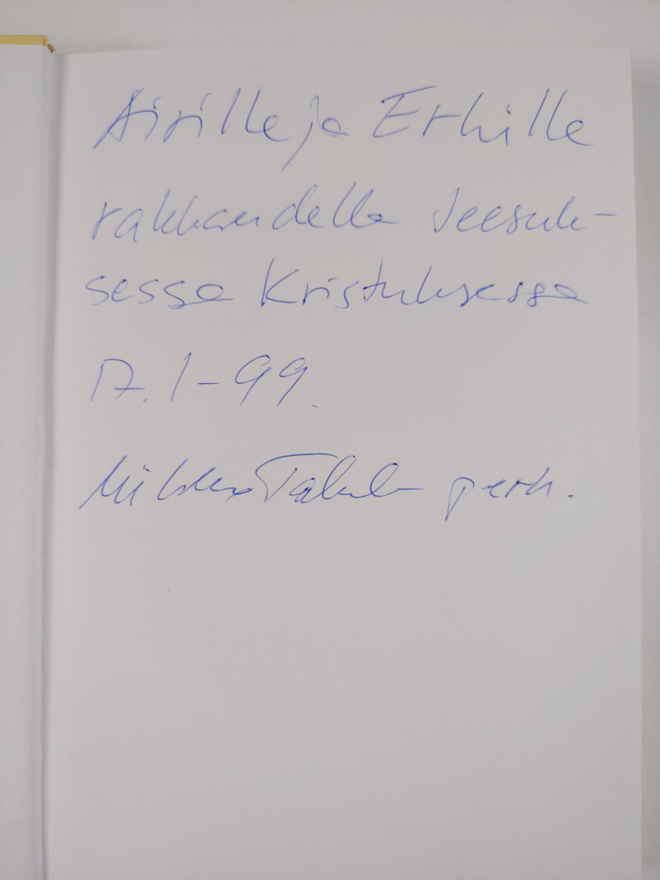 Airille ja Erkille
rakkaudella Jeesuk-
sessa Kristuksessa
17.1-99.
perh.